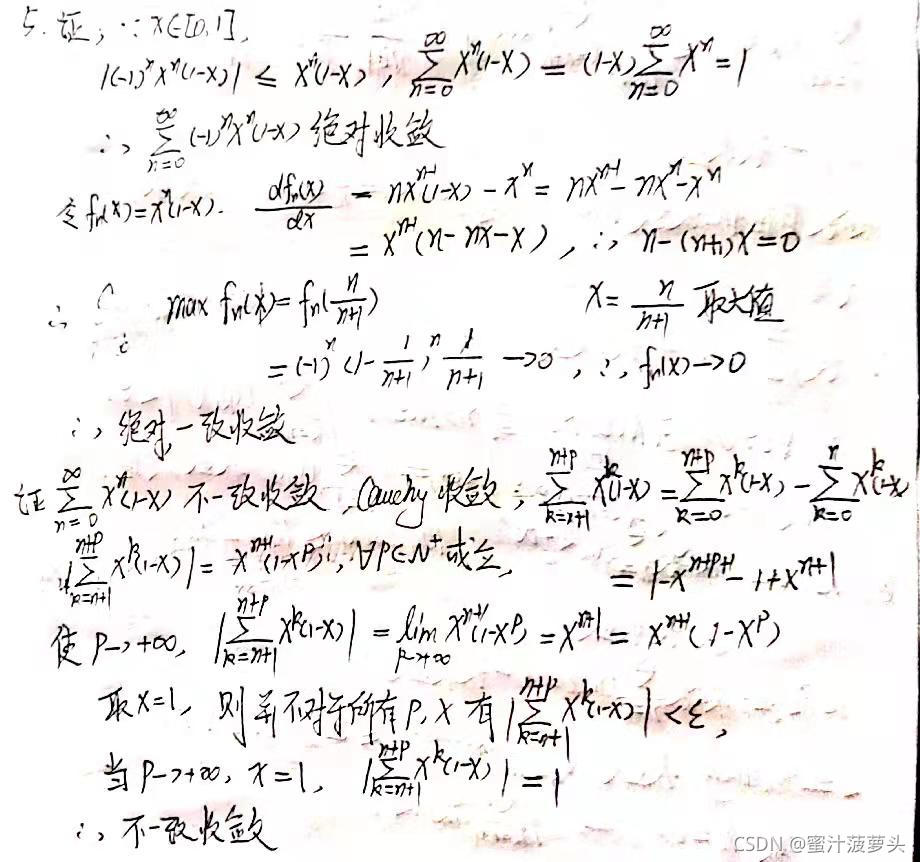 5. 证: ∵ x∈[0,1],
|(-1)ⁿxⁿ(1-x)| ≤ xⁿ(1-x), ∑_{n=0}^{∞} xⁿ(1-x) = (1-x)∑_{n=0}^{∞} xⁿ = 1
∴ ∑_{n=0}^{∞} (-1)ⁿxⁿ(1-x) 绝对收敛
令 fₙ(x)=xⁿ(1-x). dfₙ(x)/dx = nxⁿ⁻¹(1-x) - xⁿ = nxⁿ⁻¹ - nxⁿ - xⁿ
= xⁿ⁻¹(n-nx-x), ∴ n-(n+1)x=0
∴ max fₙ(x) = fₙ(n/(n+1)) x = n/(n+1) 取大值
= (-1)ⁿ(1 - 1/(n+1))ⁿ 1/(n+1) → 0, ∴ fₙ(x)→0
∴ 绝对一致收敛
证 ∑_{n=0}^{∞} xⁿ(1-x) 不一致收敛, Cauchy 收敛, ∑_{k=n+1}^{n+p} x^k(1-x) = ∑_{k=0}^{n+p} x^k(1-x) - ∑_{k=0}^{n} x^k(1-x)
|∑_{k=n+1}^{n+p} x^k(1-x)| = x^{n+1}(1-x^p), ∀p∈N⁺ 成立, = 1-x^{n+p+1} - 1 + x^{n+1}
使 p→+∞, |∑_{k=n+1}^{n+p} x^k(1-x)| = lim_{p→+∞} x^{n+1}(1-x^p) = x^{n+1} = x^{n+1}(1-x^p)
取 x=1, 则并不对于所有 p, x 有 |∑_{k=n+1}^{n+p} x^k(1-x)| < ε,
当 p→+∞, x=1, |∑_{k=n+1}^{n+p} x^k(1-x)| = 1
∴ 不一致收敛
CSDN @蜜汁菠萝头